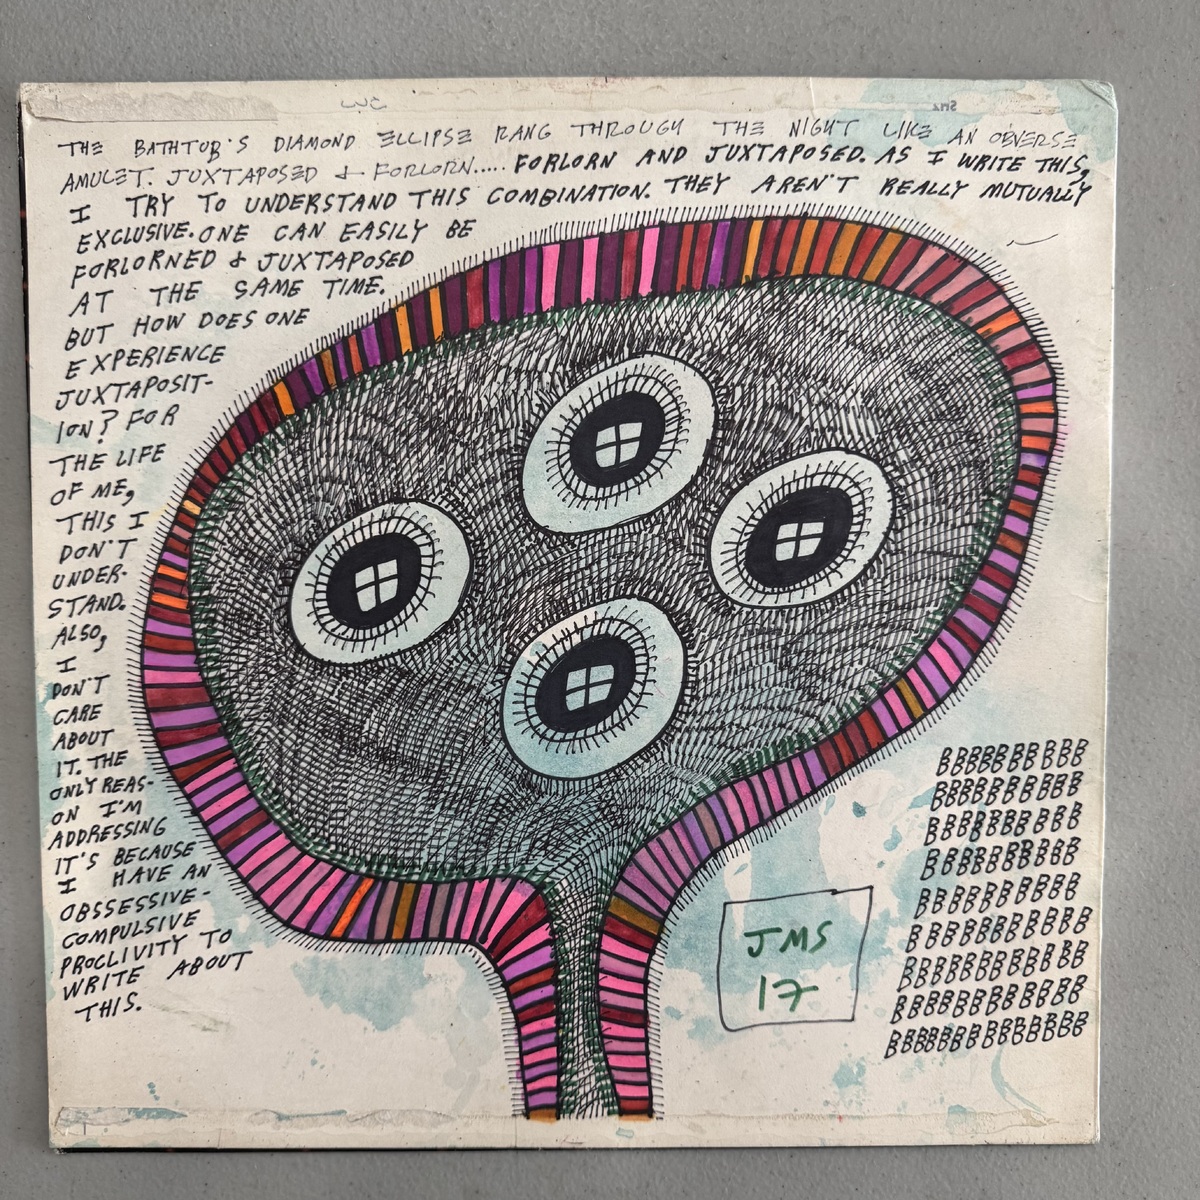 THE BATHTUB'S DIAMOND ELLIPSE RANG THROUGH THE NIGHT LIKE AN OBVERSE
AMULET. JUXTAPOSED & FORLORN..... FORLORN AND JUXTAPOSED. AS I WRITE THIS,
I TRY TO UNDERSTAND THIS COMBINATION. THEY AREN'T REALLY MUTUALLY
EXCLUSIVE. ONE CAN EASILY BE
FORLORNED & JUXTAPOSED
AT THE SAME TIME.
BUT HOW DOES ONE
EXPERIENCE
JUXTAPOSIT-
ION? FOR
THE LIFE
OF ME,
THIS I
DON'T
UNDER-
STAND.
ALSO,
I
DON'T
CARE
ABOUT
IT. THE
ONLY REAS-
ON I'M
ADDRESSING
IT'S BECAUSE
I HAVE AN
OBSSESSIVE-
COMPULSIVE
PROCLIVITY TO
WRITE ABOUT
THIS.
BBBBBBBBBBB
BBBBBBBBBBB
BBBBBBBBBBB
BBBBBBBBBBB
BBBBBBBBBBB
BBBBBBBBBBBB
BBBBBBBBBBBB
BBBBBBBBBBBB
BBBBBBBBBBBBB
JMS
17